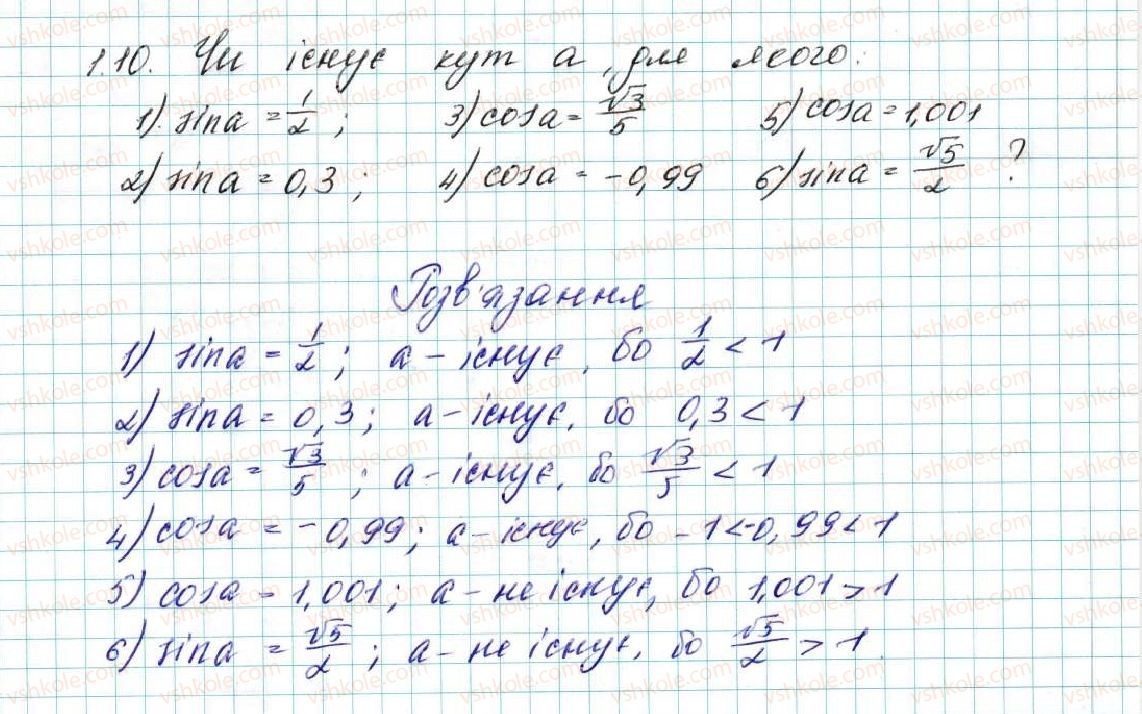 1.10. Чи існує кут a, для якого:
1) sina = 1/2; 3) cosa = √3/5 5) cosa = 1,001
2) sina = 0,3; 4) cosa = -0,99 6) sina = √5/2 ?
Розв'язання
1) sina = 1/2; a - існує, бо 1/2 < 1
2) sina = 0,3; a - існує, бо 0,3 < 1
3) cosa = √3/5; a - існує, бо √3/5 < 1
4) cosa = -0,99; a - існує, бо -1 < -0,99 < 1
5) cosa = 1,001; a - не існує, бо 1,001 > 1
6) sina = √5/2; a - не існує, бо √5/2 > 1.